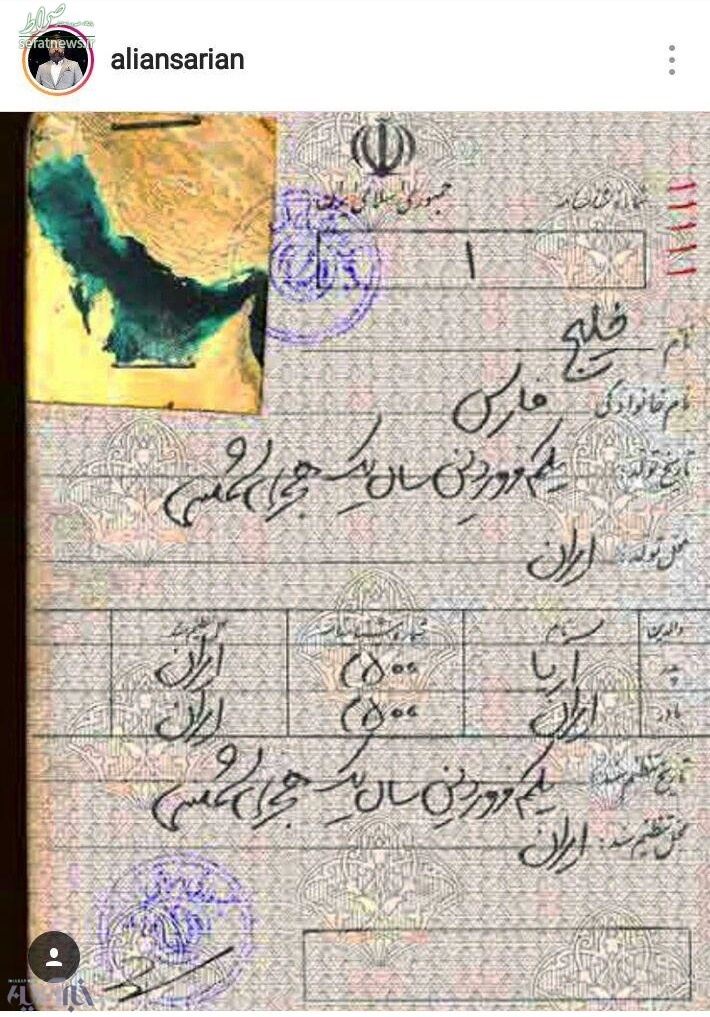 صراط
serfatnews.ir
aliansarian
جمهوری اسلامی ایران
شماره شناسنامه
۱۱۱۱۱
۱
نام خلیج
نام خانوادگی فارس
تاریخ تولد: یکم فروردین سال یک هجرای شمسی
محل تولد: ایران
والدین نام شماره شناسنامه محل تنظیم سند
پدر آریا ۲۵۰۰ ایران
مادر ایران ۲۵۰۰ ایران
تاریخ تنظیم سند: یکم فروردین سال یک هجرای شمسی
محل تنظیم سند: ایران